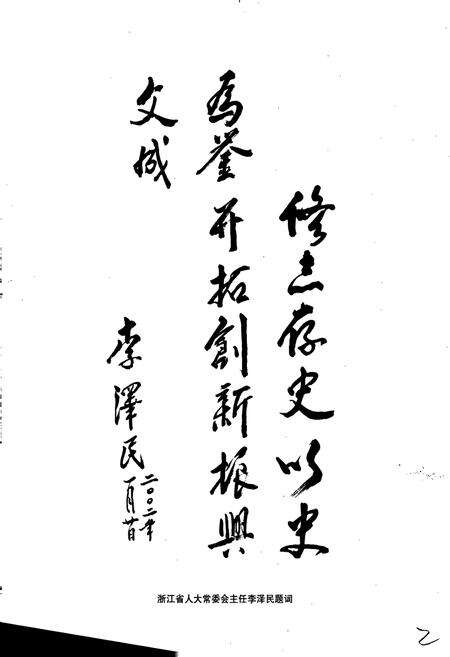 修志存史以史
為鉴开拓創新振興
文成
李澤民
二〇〇二年
浙江省人大常委会主任李泽民题词